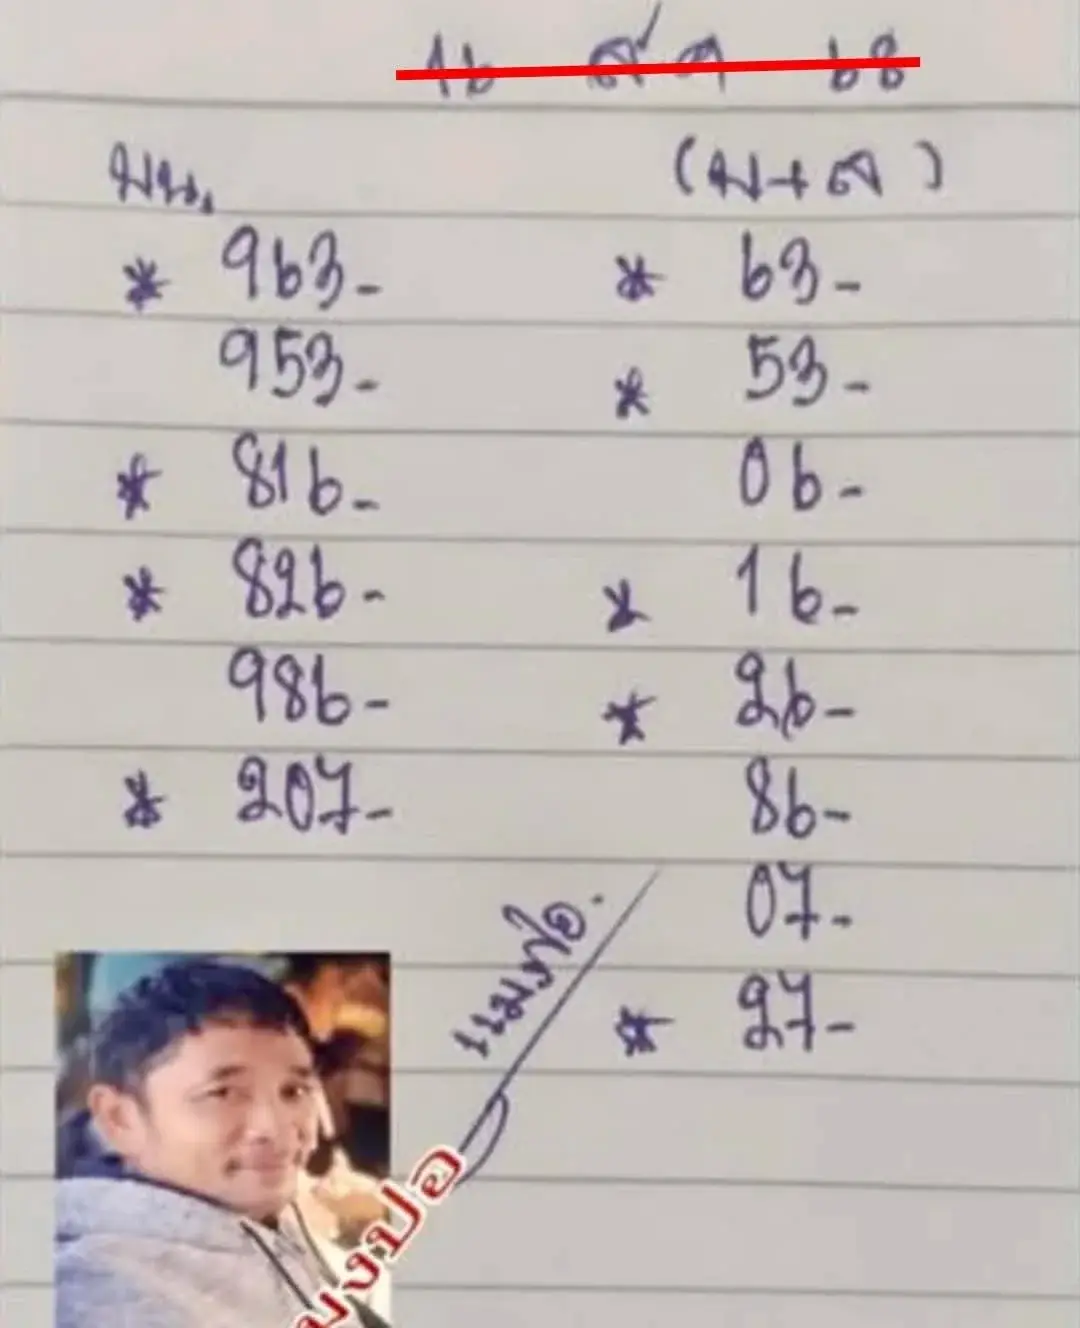 16 ส.ค 68
บน. (บ+ล)
* 963- * 63-
953- * 53-
* 816- 06-
* 826- * 16-
986- * 26-
* 207- 86-
07-
* 27-
แมงปอ.
มงปอ